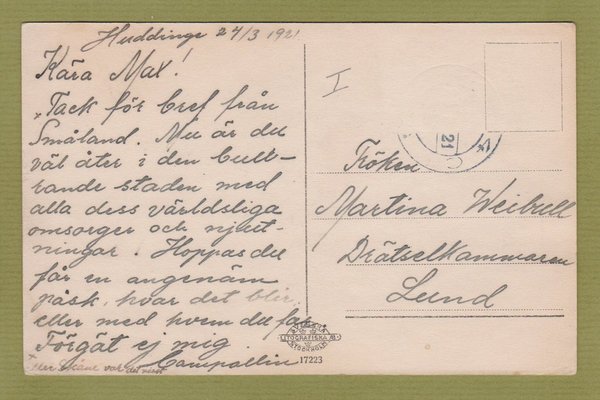 Huddinge 24/3 1921
Kära Max!
Tack för bref från
Småland. Nu är du
väl åter i den bull-
rande staden med
alla dess världsliga
omsorger och njut-
ningar. Hoppas du
får en angenäm
påsk, hvar det blir
eller med hvem du får.
Förgät ej mig.
var det
I
21
Fröken
Martina Weibull
Drätselkammaren
Lund
LITOGRAFISKA AB.
17223